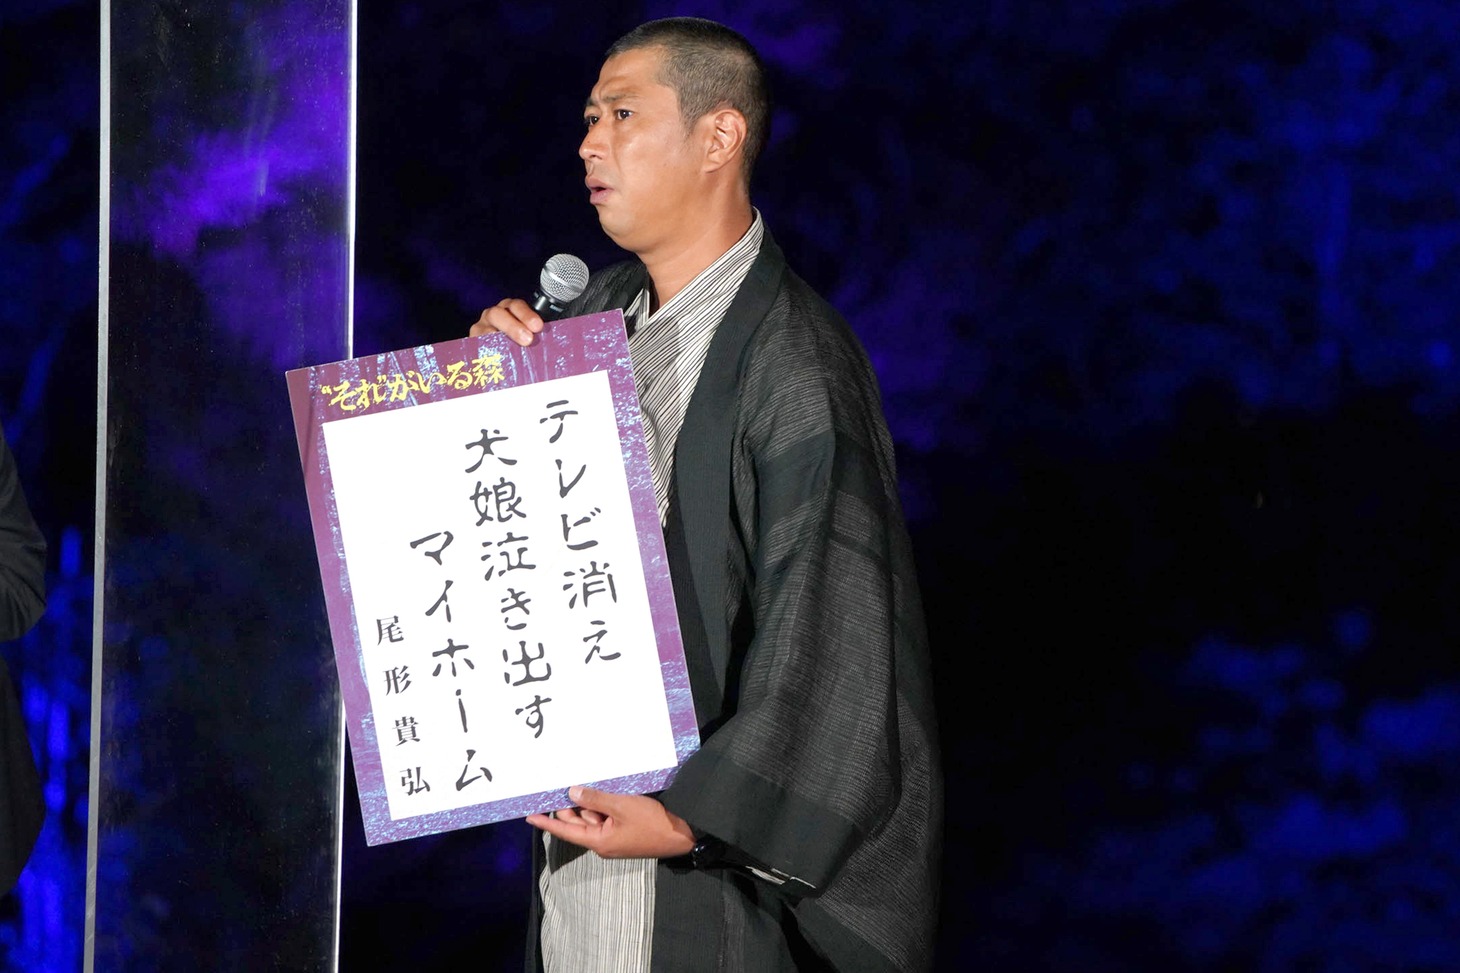 “それ”がいる森
テレビ消え
犬娘泣き出す
マイホーム
尾形貴弘